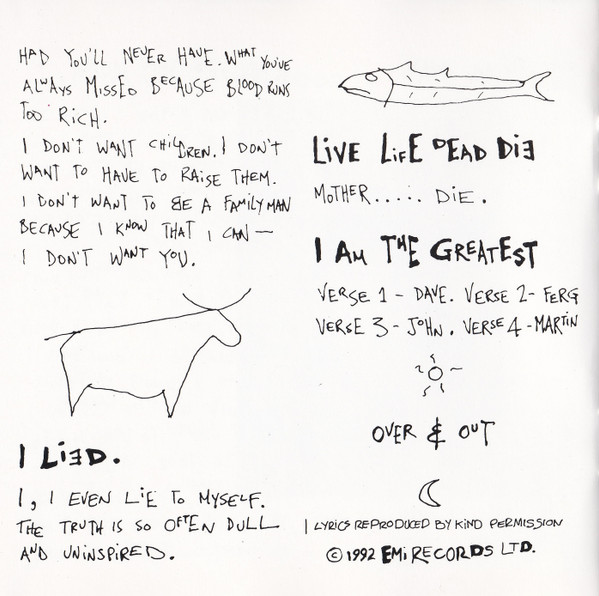 HAD YOU'LL NEVER HAVE. WHAT YOU'VE
ALWAYS MISSED BECAUSE BLOOD RUNS
TOO RICH.
I DON'T WANT CHILDREN. I DON'T
WANT TO HAVE TO RAISE THEM.
I DON'T WANT TO BE A FAMILY MAN
BECAUSE I KNOW THAT I CAN —
I DON'T WANT YOU.
I LIED.
I, I EVEN LIE TO MYSELF.
THE TRUTH IS SO OFTEN DULL
AND UNINSPIRED.
LIVE LIFE DEAD DIE
MOTHER...... DIE.
I AM THE GREATEST
VERSE 1 - DAVE. VERSE 2 - FERG
VERSE 3 - JOHN. VERSE 4 - MARTIN
OVER & OUT
| LYRICS REPRODUCED BY KIND PERMISSION
© 1992 EMI RECORDS LTD.